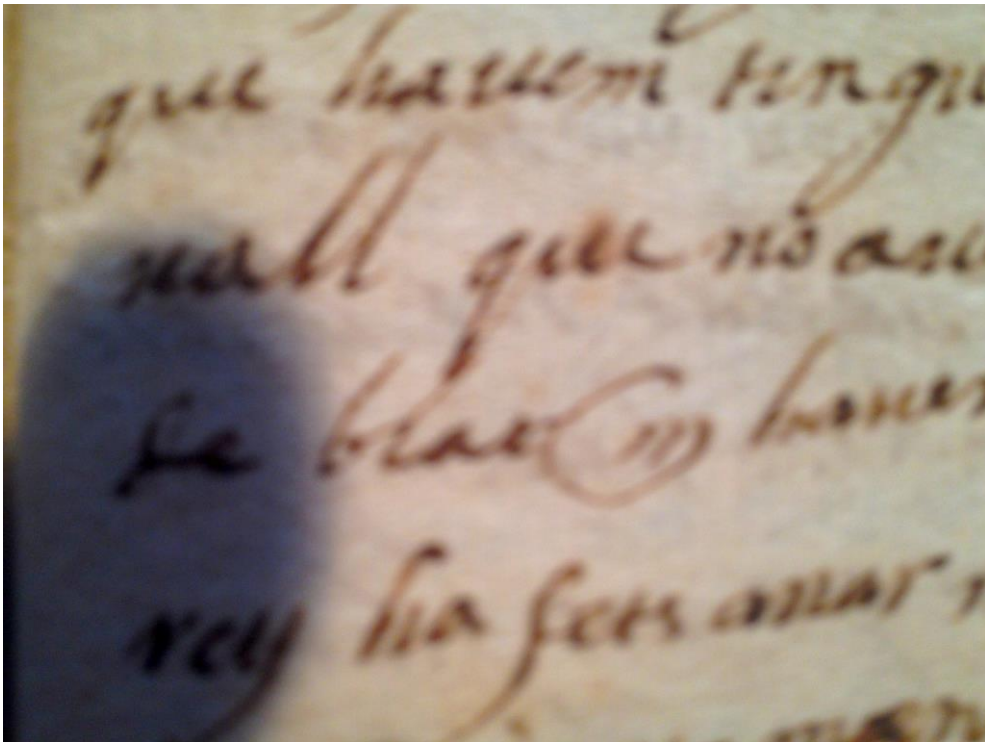 que hauem tingu
nall que no au
se blat m hauer
rey ha fets anar